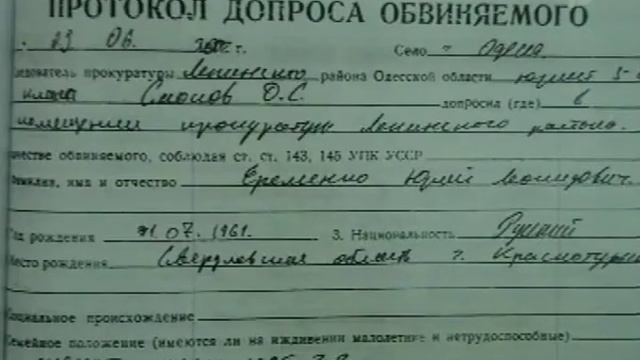 ПРОТОКОЛ ДОПРОСА ОБВИНЯЕМОГО
23 06. г. Село -
прокуратуры Ленинского района Одесской области юрист
класса О.С. допросил (где) в
помещении прокуратуры Ленинского района.
честве обвиняемого, соблюдая ст. ст. 143, 145 УПК УССР
имя и отчество Еременко Юрий Леонидович
од рождения 07. 1961. 3. Национальность Русский
есто рождения Свердловская область г. Краснотурьи
циальное происхождение
емейное положение (имеются ли на иждивении малолетние и нетрудоспособные)